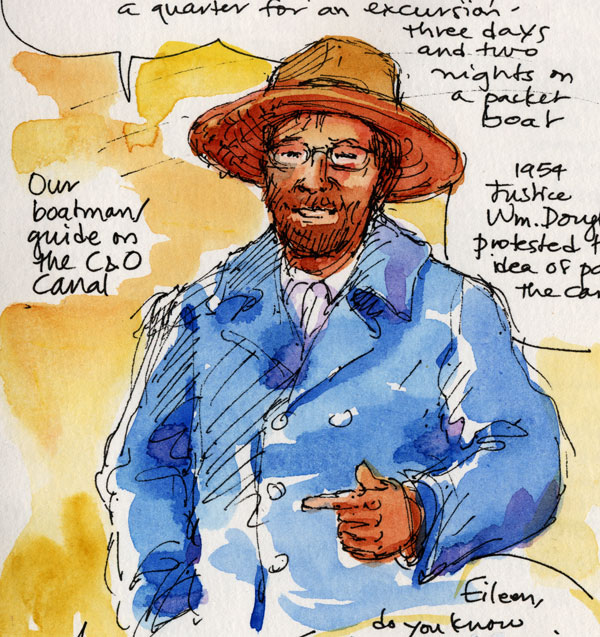 a quarter for an excursion.
three days
and two
nights on
a packet
boat
Our
boatman/
guide on
the C&O
Canal
1954
Justice
Wm. Doug
protested
idea of
the
Eileen,
do you know